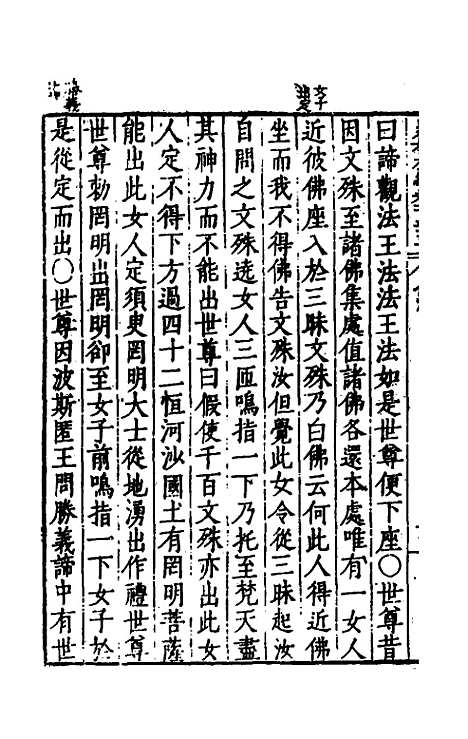 曰諦觀法王法法王法如是世尊便下座○世尊昔
因文殊至諸佛集處值諸佛各還本處唯有一女人
近彼佛座入於三昧文殊乃白佛云何此人得近佛
坐而我不得佛告文殊汝但覺此女令從三昧起汝
自問之文殊遶女人三匝鳴指一下乃托至梵天盡
其神力而不能出世尊曰假使千百文殊亦出此女
人定不得下方過四十二恒河沙國土有罔明菩薩
能出此女人定須臾罔明大士從地湧出作禮世尊
世尊勅罔明出罔明卻至女子前鳴指一下女子於
是從定而出○世尊因波斯匿王問勝義諦中有世